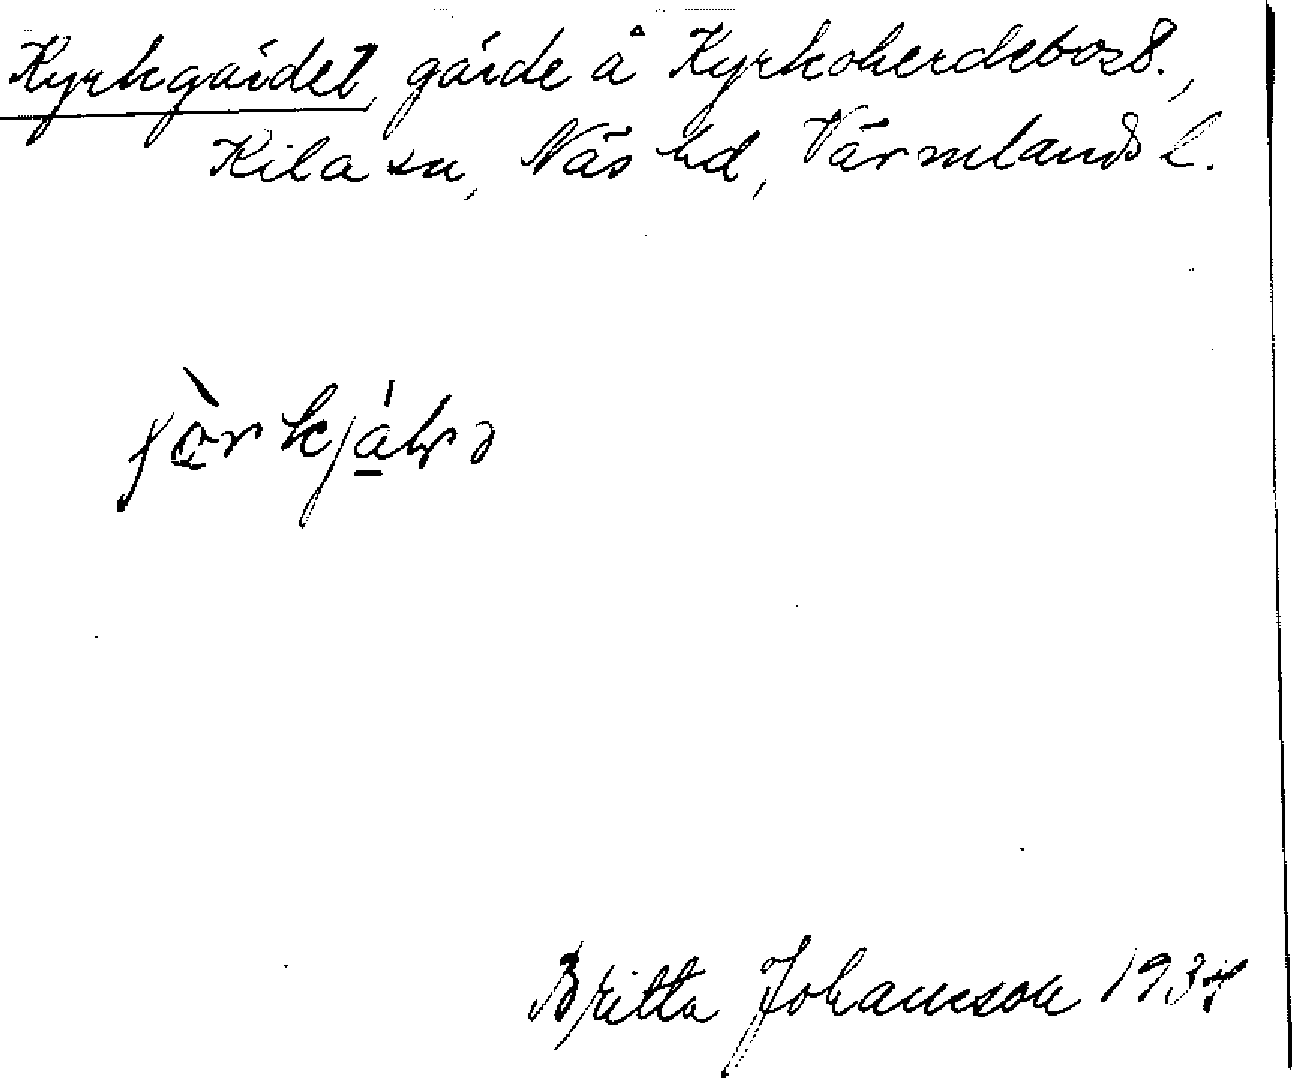 Kyrkgärdet, gärde å Kyrkoherdebost.,
Kila sn, Näs hd, Värmlands l.
Britta Johansson 1934